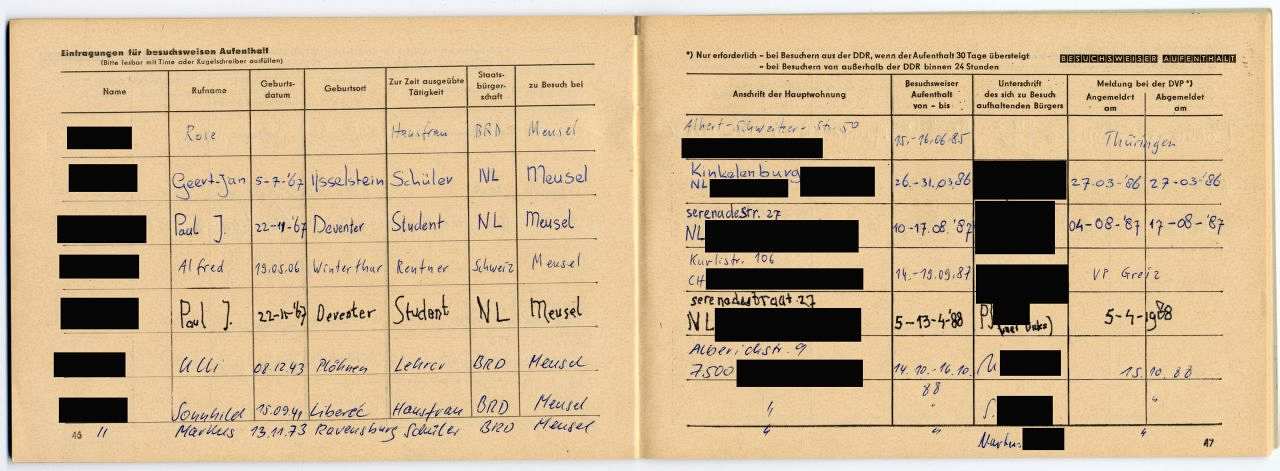 Eintragungen für besuchsweisen Aufenthalt
(Bitte lesbar mit Tinte oder Kugelschreiber ausfüllen)
Name Rufname Geburts-datum Geburtsort Zur Zeit ausgeübte Tätigkeit Staats-bürger-schaft zu Besuch bei
Rose Hausfrau BRD Meusel
Geert-Jan 5-7-'67 IJsselstein Schüler NL Meusel
Paul J. 22-11-'67 Deventer Student NL Meusel
Alfred 19.05.06 Winterthur Rentner Schweiz Meusel
Paul J. 22-11-'67 Deventer Student NL Meusel
Ulli 08.12.43 Lehrer BRD Meusel
Sonnhild 15.09.41 Liberec Hausfrau BRD Meusel
46 " Markus 13.11.73 Ravensburg Schüler BRD Meusel
*) Nur erforderlich – bei Besuchern aus der DDR, wenn der Aufenthalt 30 Tage übersteigt
– bei Besuchern von außerhalb der DDR binnen 24 Stunden
BESUCHSWEISER AUFENTHALT
Anschrift der Hauptwohnung Besuchsweiser Aufenthalt von – bis Unterschrift des sich zu Besuch aufhaltenden Bürgers Meldung bei der DVP *)
Angemeldet am Abgemeldet am
Albert-Schweitzer-Str. 50
15.-16.06.85 Thüringen
Kinkelenburg
NL 26.-31.03.86 27-03-'86 27-03-'86
serenadestr. 27
NL 10-17.08.'87 04-08-'87 17-08-'87
Kurlistr. 106
CH 14.-19.09.87 VP Greiz
serenadestraat 27
NL 5-13-4-'88 5-4-1988
Alberichstr. 9
7500 14.10.-16.10.88 15.10.88
" " S. "
" " Markus "
47